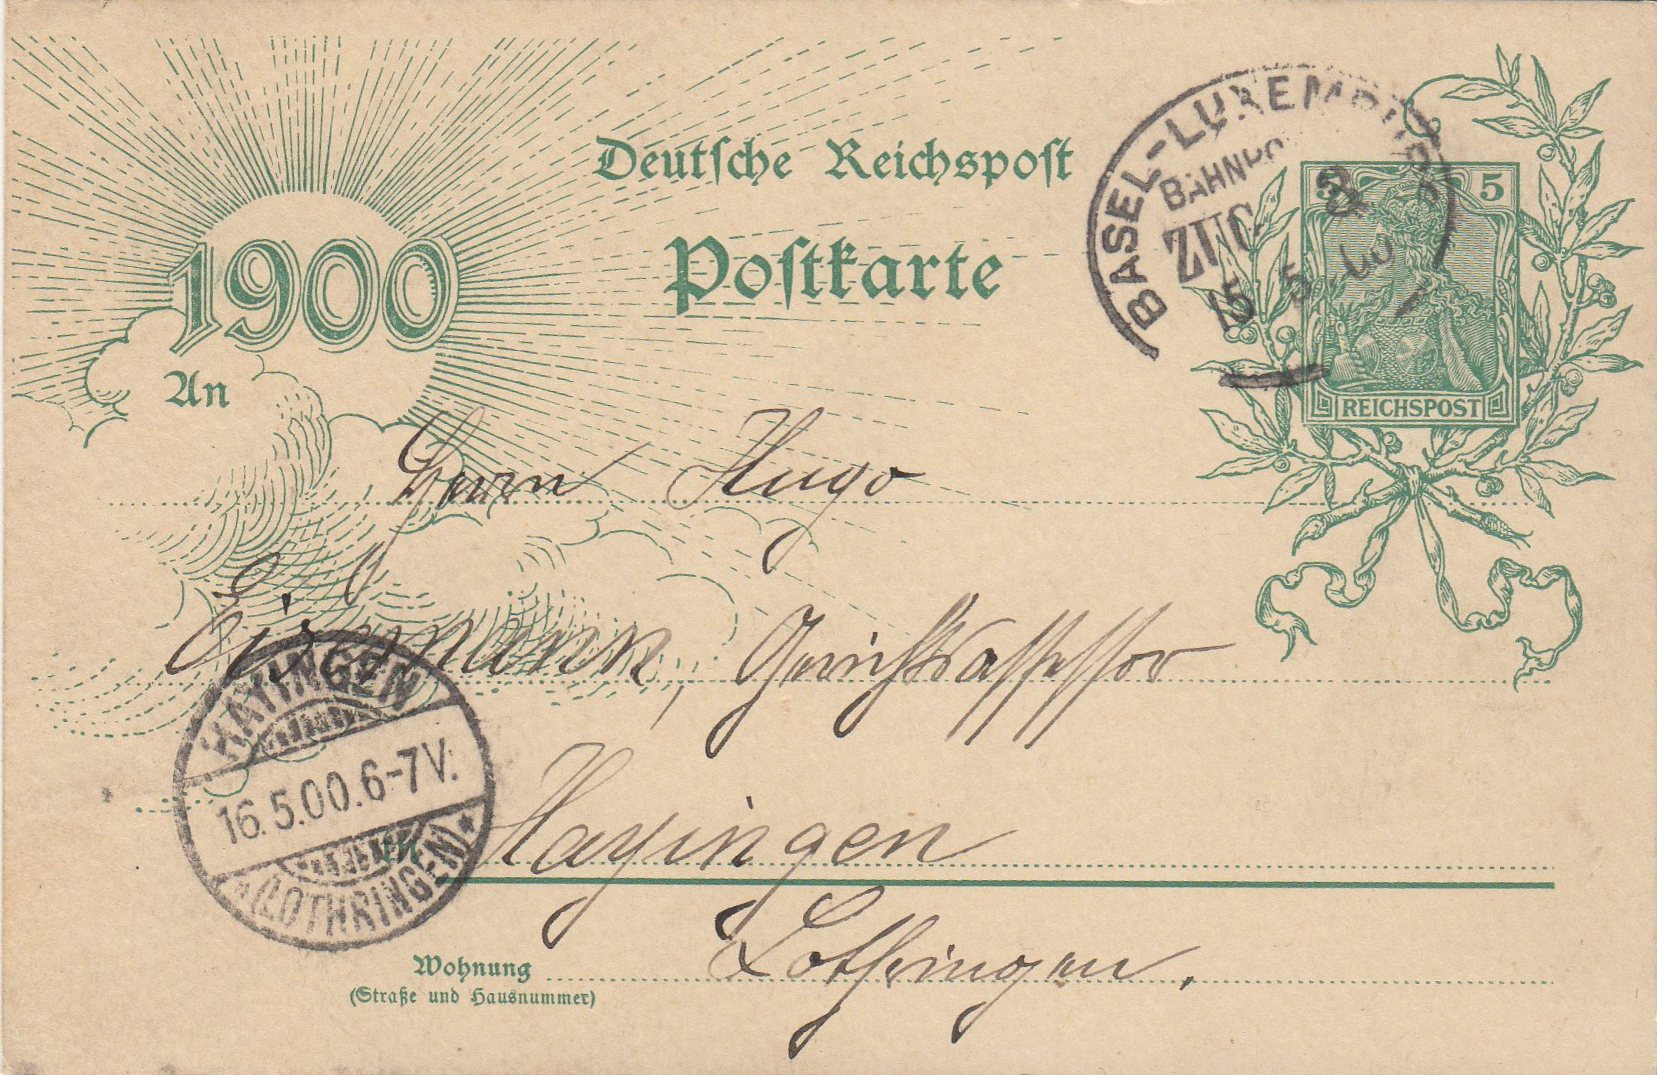 1900
Deutsche Reichspost
Postkarte
BASEL-LUXEMBURG
BAHNPOST
ZUG 8
15 5 00
5
REICHSPOST
An
Herrn Hugo
Eisemann, Gerichtsassessor
in Hayingen
Lothringen.
HAYINGEN
16.5.00.6-7V.
* (LOTHRINGEN) *
Wohnung
(Straße und Hausnummer)